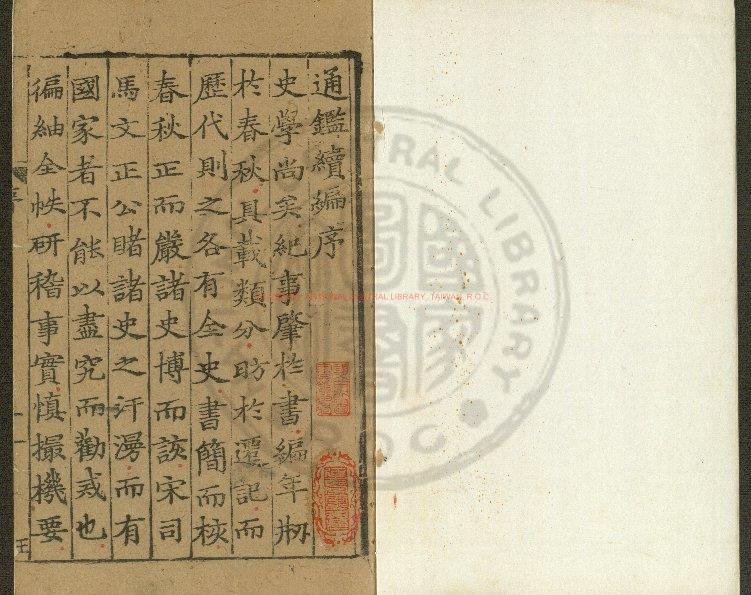 通鑑續編序
史學尚矣紀事肇於書編年剏
於春秋具載類分昉於遷記而
歷代則之各有全史書簡而核
春秋正而嚴諸史博而該宋司
馬文正公睹諸史之汗漫而有
國家者不能以盡究而勸戒也
徧紬全帙研稽事實慎撮機要
CENTRAL LIBRARY
R.O.C.
NATIONAL CENTRAL LIBRARY, TAIWAN, R.O.C.